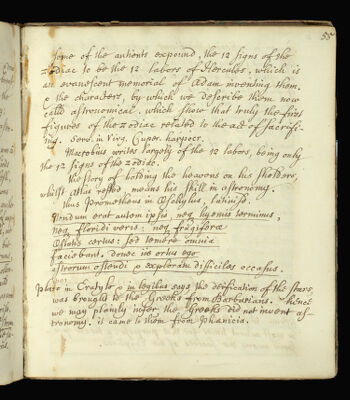 55
Some of the antients expound, the 12 signs of the
zodiac to be the 12 labors of Hercules, which is
an evanescent memorial of Adam inventing them.
& the characters, by which we describe them now
calld astronomical, which shew that truly the first
figures of the zodiac related to the act of sacrifi-
ing. Serv. in Virg. Cuper. harpocr.
Macrobius writes largely of the 12 labors, being only
the 12 signs of the zodiac.
the story of holding the heavens on his sholders,
whilst atlas rested, means his skill in astronomy.
thus Prometheus in Æschylus, latiniss.
Nondum erat autem ipsis, neq hyemis terminus,
neq floridi veris: neq frugiferæ
Æstatis certus: sed temere omnia
faciebant. donec iis ortus ego
astrorum ostendi & exploratu difficiles occasus.
Plato in Cratylo & in legibus says the deification of the stars,
was brought to the Greeks from Barbarians. hence
we may plainly infer the Greeks did not invent as-
tronomy. it came to them from Phænicia.